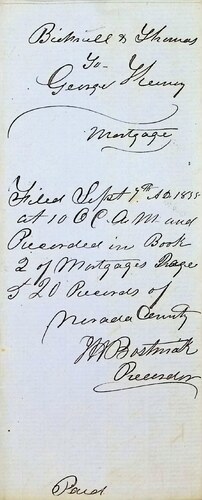 Bicknell & Thomas
To
George Keeney
Mortgage
Filed Sept 7th AD 1855
at 10 O C. A.M and
Recorded in Book
2 of Mortgages Page
520 Records of
Nevada County
Bostwick
Recorder
Paid